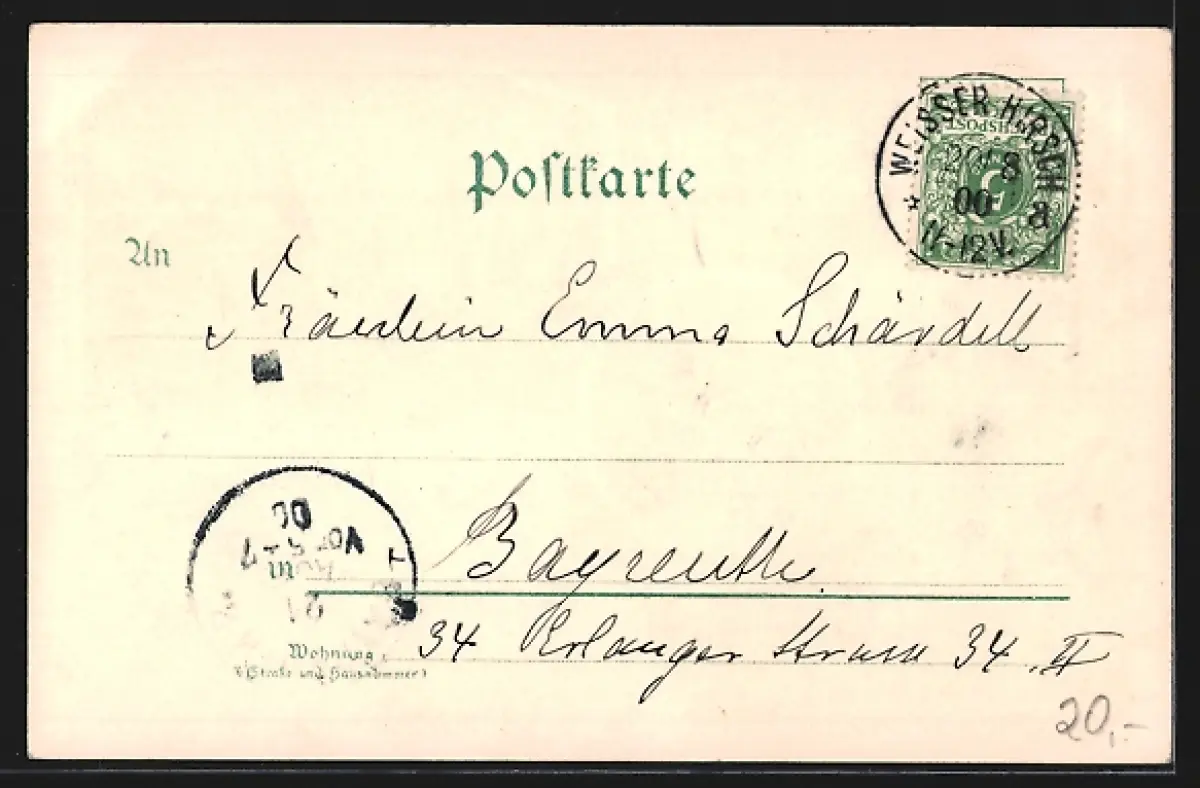 Postkarte
WEISSER HIRSCH
20/8
00 a
11-12V.
An
Fräulein Emma Schärdell
Bayreuth
in
34 Erlanger Strasse 34 II
Wohnung
(Straße und Hausnummer)
20,-